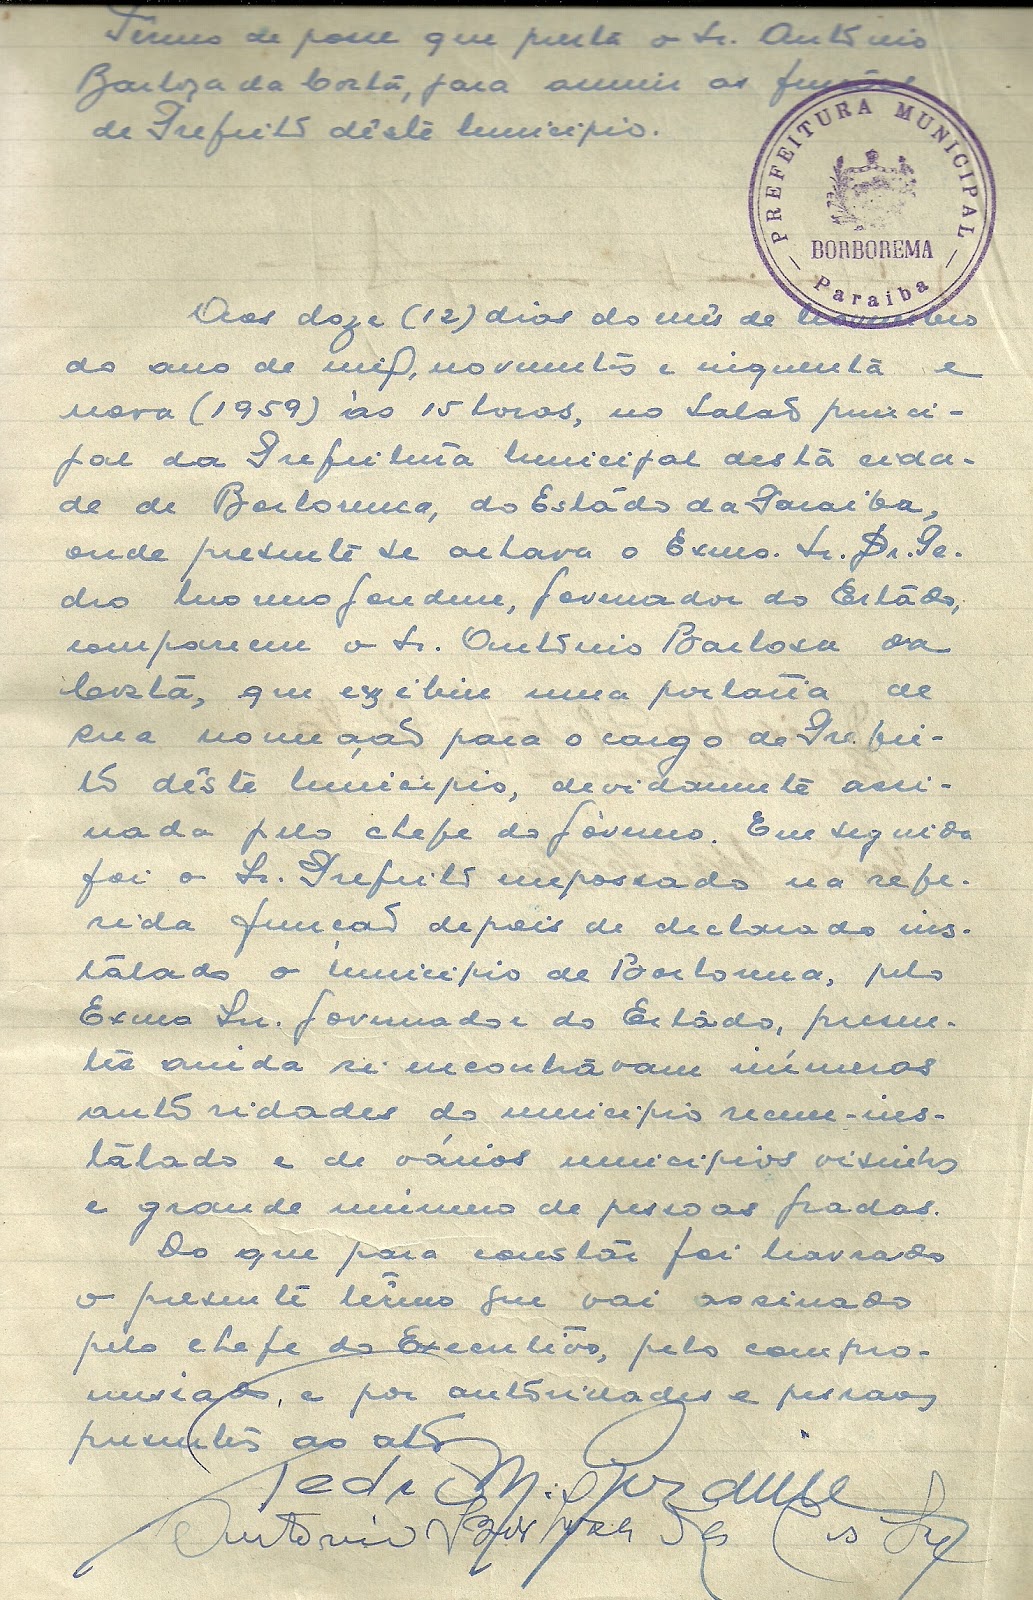 Têrmo de posse que presta o Sr. Antônio
Barboza da Costa, para assumir as funções
de Prefeito dêste Município.
PREFEITURA MUNICIPAL
BORBOREMA
Paraiba
Aos doze (12) dias do mês de novembro
do ano de mil, novecentos e cinquenta e
nova (1959) às 15 horas, no Salão princi-
pal da Prefeitura Municipal desta cida-
de de Borborema, do Estado da Paraiba,
onde presente se achava o Exmo. Sr. Dr. Pe-
dro Moreno Gondim, Governador do Estado,
compareceu o Sr. Antônio Barbosa da
Costa, que exibiu uma portaria de
sua nomeação para o cargo de Prefei-
to dêste Município, devidamente assi-
nada pelo chefe do Govêrno. Em seguida
foi o Sr. Prefeito empossado na refe-
rida função depois de declarado ins-
talado o município de Borborema, pelo
Exmo Snr. Governador do Estado, presen-
tes ainda se encontravam inúmeras
autoridades do município recem-ins-
talado e de vários municípios visinhos
e grande número de pessoas gradas.
Do que para constar foi lavrado
o presente têrmo que vai assinado
pelo chefe do Executivo, pelo compro-
missado, e por autoridades e pessoas
presentes ao ato
Pedro M. Gondim
Antônio Barboza da Costa